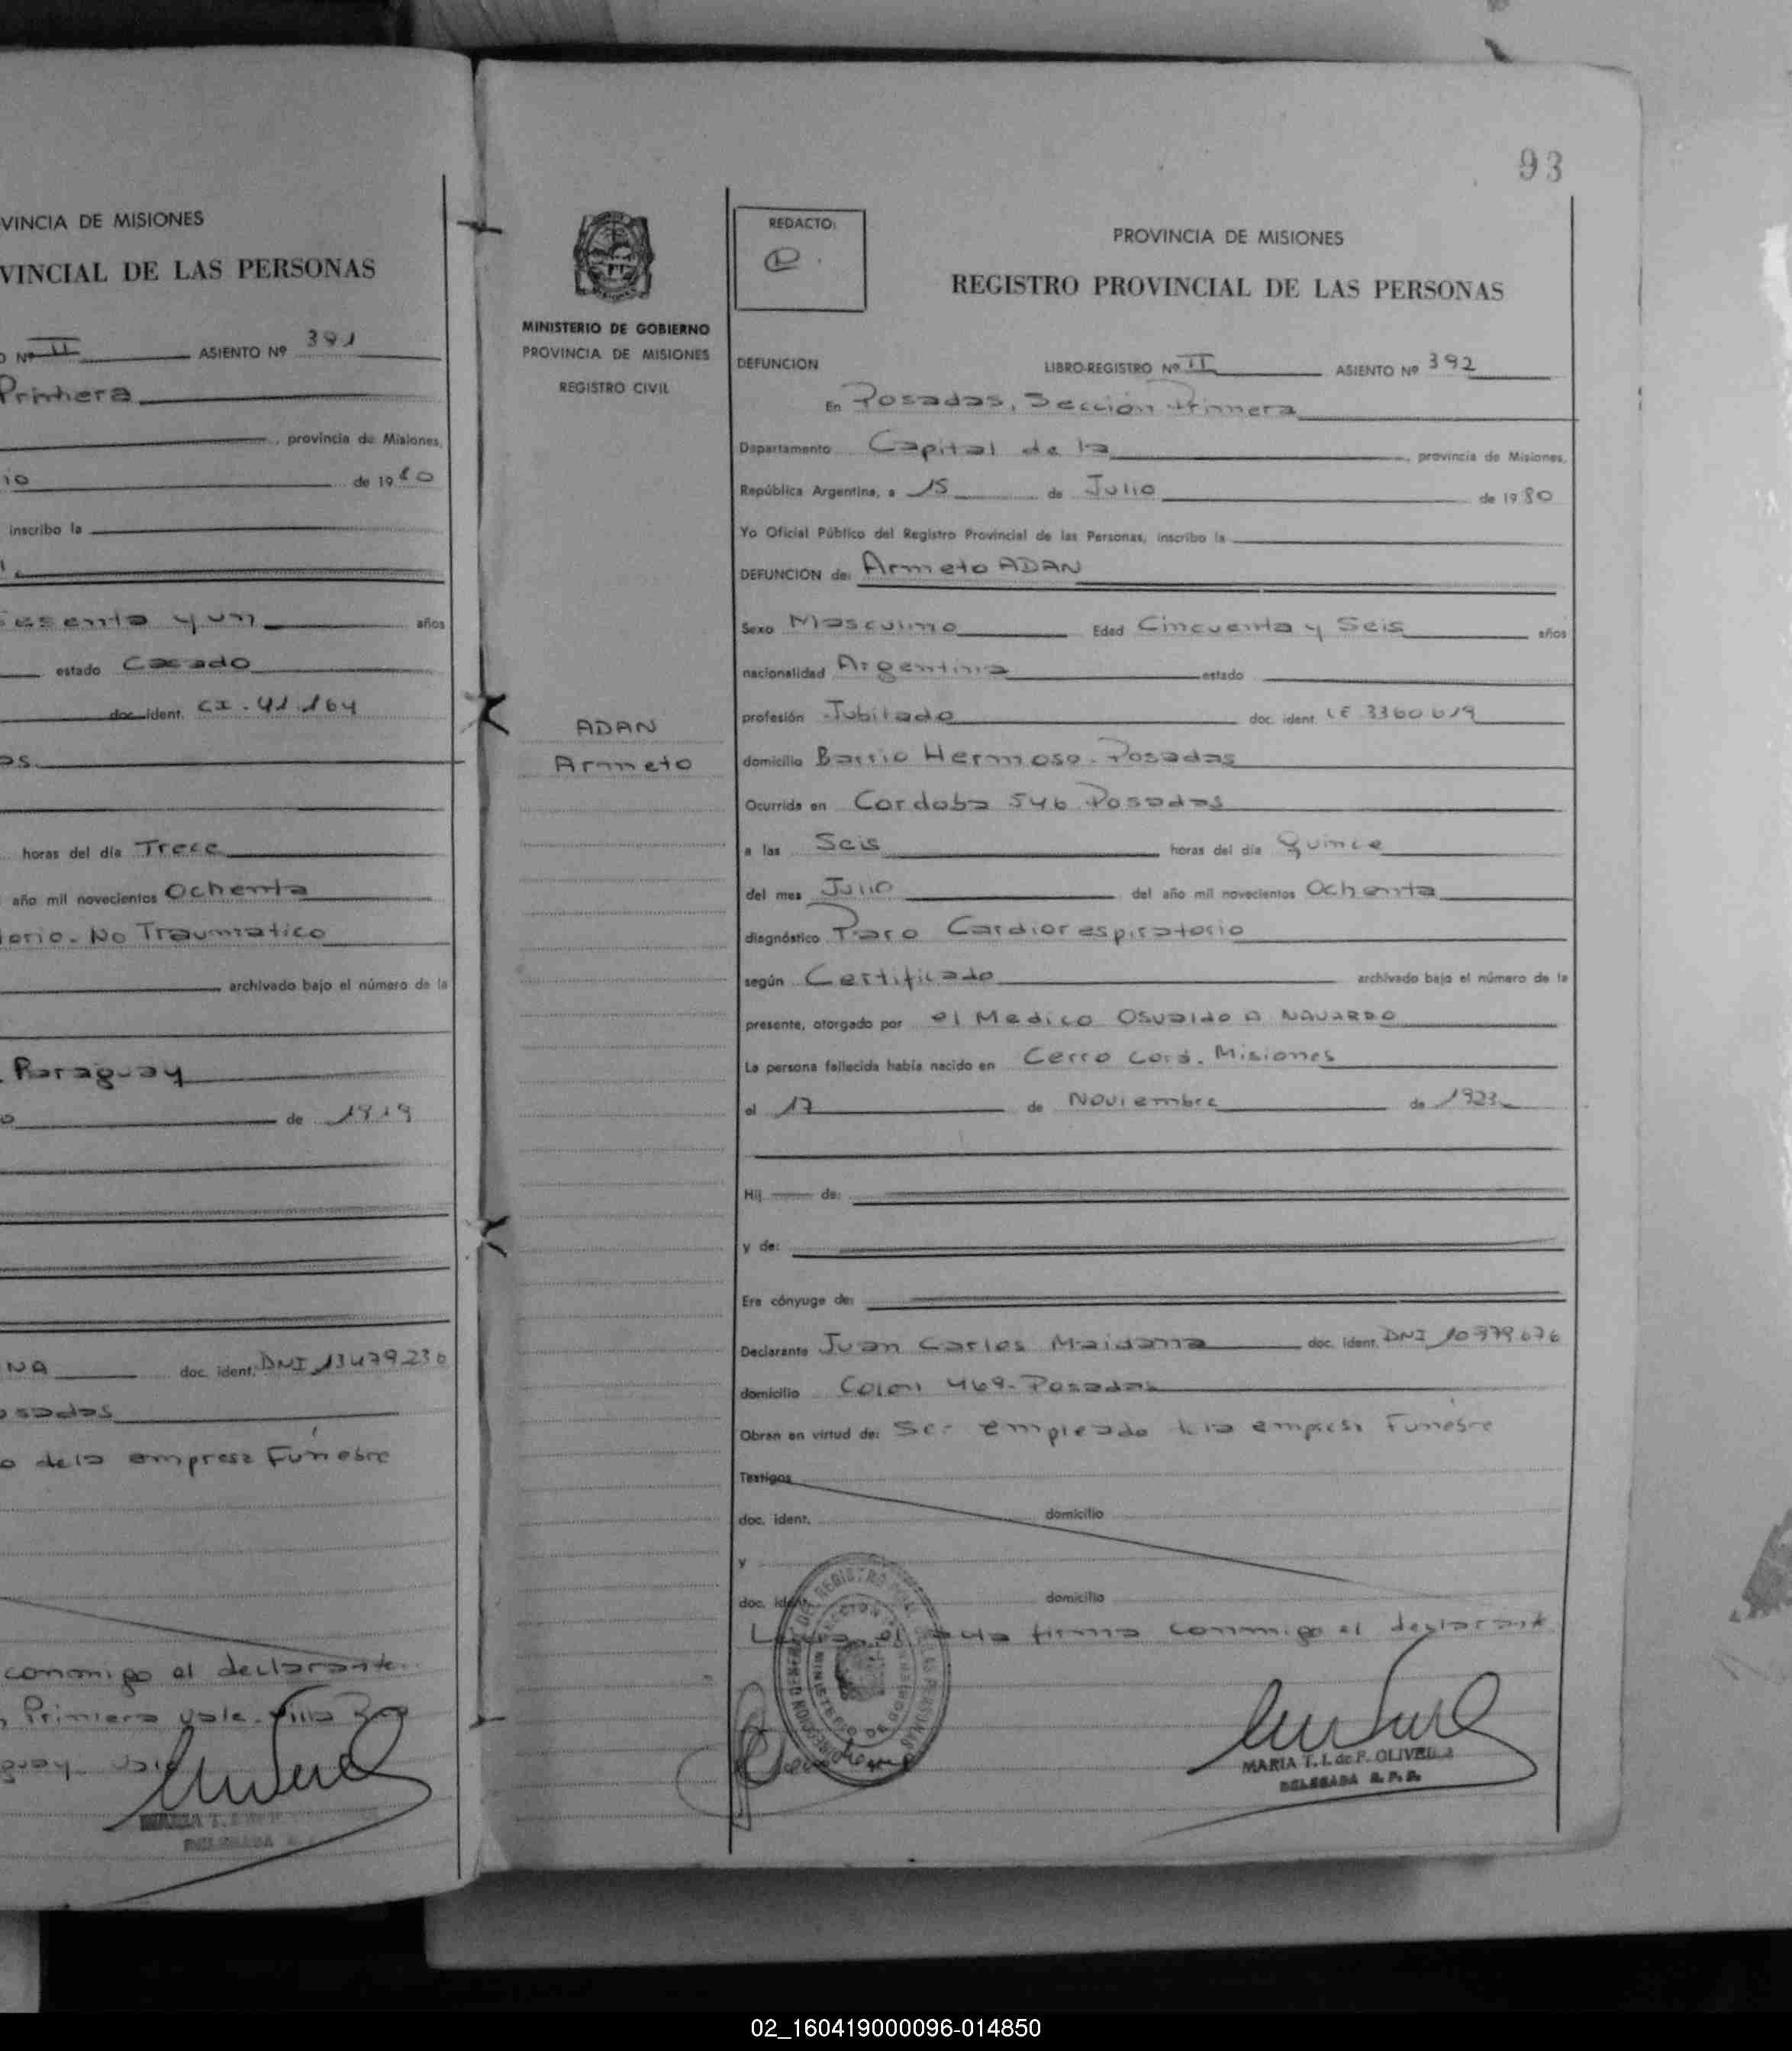 VINCIA DE MISIONES
VINCIAL DE LAS PERSONAS
O Nº II ASIENTO Nº 391
Primera
, provincia de Misiones,
io de 1980
inscribo la
esenta y un años
estado Casado
doc. ident. CI. 41.164
as
horas del día Trece
año mil novecientos Ochenta
torio. No Traumatico
archivado bajo el número de la
Paraguay
o de 1919
NA doc. ident. DNI 13479230
osadas
o de la empresa Funebre
conmigo el declarante
Primera vale. Villa
guay vale
93
MINISTERIO DE GOBIERNO
PROVINCIA DE MISIONES
REGISTRO CIVIL
ADAN
Armeto
REDACTO:
PROVINCIA DE MISIONES
REGISTRO PROVINCIAL DE LAS PERSONAS
DEFUNCION LIBRO-REGISTRO Nº II ASIENTO Nº 392
En Posadas, Sección Primera
Departamento Capital de la , provincia de Misiones,
República Argentina, a 15 de Julio de 1980
Yo Oficial Público del Registro Provincial de las Personas, inscribo la
DEFUNCION de: Armeto ADAN
Sexo Masculino Edad Cincuenta y Seis años
nacionalidad Argentina estado
profesión Jubilado doc. ident. LE 3360619
domicilio Barrio Hermoso. Posadas
Ocurrida en Cordoba 546 Posadas
a las Seis horas del día Quince
del mes Julio del año mil novecientos Ochenta
diagnóstico Paro Cardiorespiratorio
según Certificado archivado bajo el número de la
presente, otorgado por el Medico Osvaldo A NAVARRO
La persona fallecida había nacido en Cerro Cora. Misiones
el 17 de Noviembre de 1923
Hij de:
y de:
Era cónyuge de:
Declarante Juan Carlos Maidana doc. ident. DNI 10979676
domicilio Colon 469- Posadas
Obran en virtud de: Ser empleado de la empresa Funebre
Testigos
doc. ident. domicilio
y
doc. ident. domicilio
el acta firma conmigo el declarante
MARIA T. I. de F. OLIVEIRA
DELEGADA R. P. P.
02_160419000096-014850